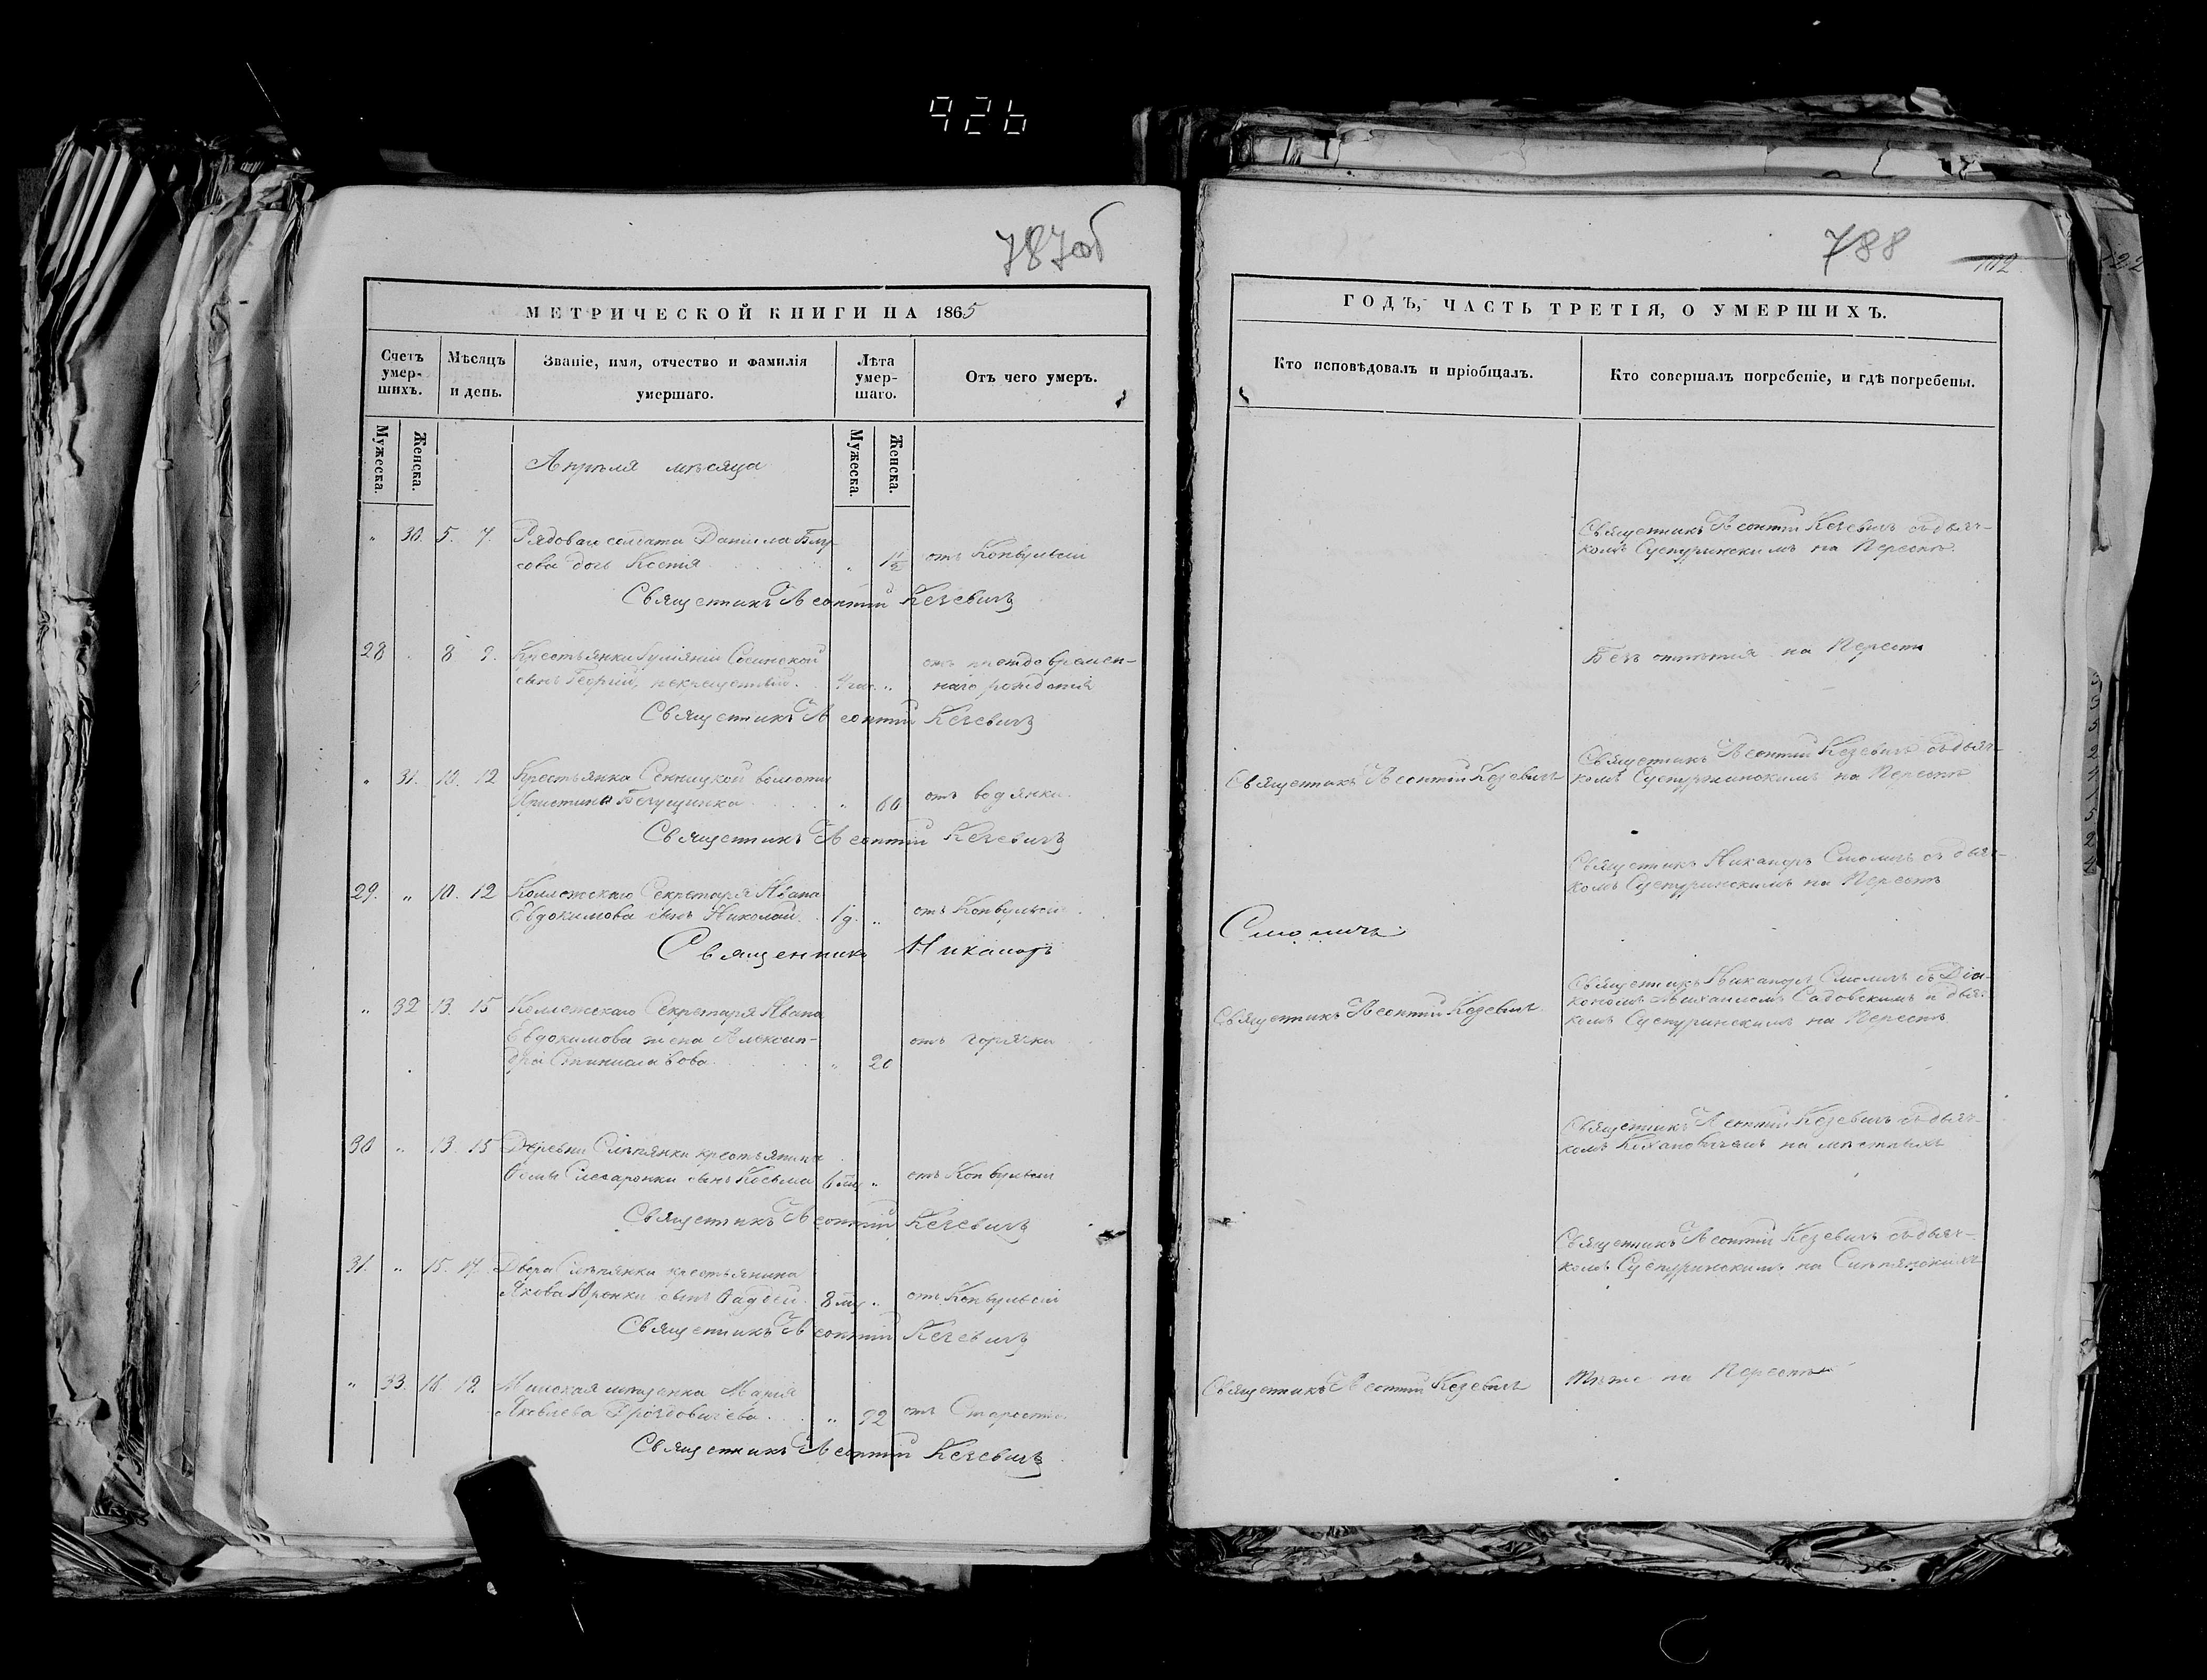 926
787об
МЕТРИЧЕСКОЙ КНИГИ НА 1865
Счетъ умер-шихъ.
Мѣсяцъ и день.
Званіе, имя, отчество и фамилія умершаго.
Лѣта умер-шаго.
Отъ чего умеръ.
Мужеска.
Женска.
Мужеска.
Женска.
Апрѣля мѣсяца
" 30. 5. 7. Рядоваго солдата Даніила
дочь Ксенія " 1½ отъ Конвульсій
Священникъ Леонтій Кезевичъ
28 8 9. Крестьянки Сосинской
сынъ Георгій, некрещенный. 4 час. " отъ преждевремен-
наго рожденія
Священникъ Леонтій Кезевичъ
" 31. 10. 12 Крестьянка Сенницкой волости
Христина " 60 отъ водянки.
Священникъ Леонтій Кезевичъ
29. " 10. 12 Коллежскаго Секретаря Ивана
Евдокимова сынъ Николай. 1 г. " отъ Конвульсій.
Священникъ Никаноръ
" 32 13. 15 Коллежскаго Секретаря Ивана
Евдокимова жена Алексан-
дра Станиславова " 20 отъ горячки
30 " 13. 15 Деревни Слѣпянки крестьянина
Ѳомы сынъ Косьма 6 мц " отъ Конвульсій
Священникъ Леонтій Кезевичъ
31. " 15. 17. Двора Слѣпянки крестьянина
Якова Юронки сынъ Ѳаддей. 8 мц " отъ Конвульсій
Священникъ Леонтій Кезевичъ
" 33. 16 19. Минская мѣщанка Марія
Яковлева Дроздовичева. " 92 отъ Старости.
Священникъ Леонтій Кезевичъ
788
102
122
ГОДЪ, ЧАСТЬ ТРЕТІЯ, О УМЕРШИХЪ.
Кто исповѣдовалъ и пріобщалъ.
Кто совершалъ погребеніе, и гдѣ погребены.
Священникъ Леонтій Кезевичъ съ дьяч-
комъ на Переспѣ.
Безъ отпѣтія на Переспѣ
Священникъ Леонтій Кезевичъ
Священникъ Леонтій Кезевичъ съ дьяч-
комъ на Переспѣ
Священникъ Никаноръ Смоличъ съ дьяч-
комъ на Переспѣ
Смоличъ
Священникъ Леонтій Кезевичъ.
Священникъ Никаноръ Смоличъ съ Діа-
кономъ Михаиломъ Садовскимъ и дьяч-
комъ на Переспѣ
Священникъ Леонтій Кезевичъ съ дьяч-
комъ на мѣстныхъ
Священникъ Леонтій Кезевичъ съ дьяч-
комъ на Слѣпянскихъ
Священникъ Леонтій Кезевичъ
Тѣже на Переспѣ